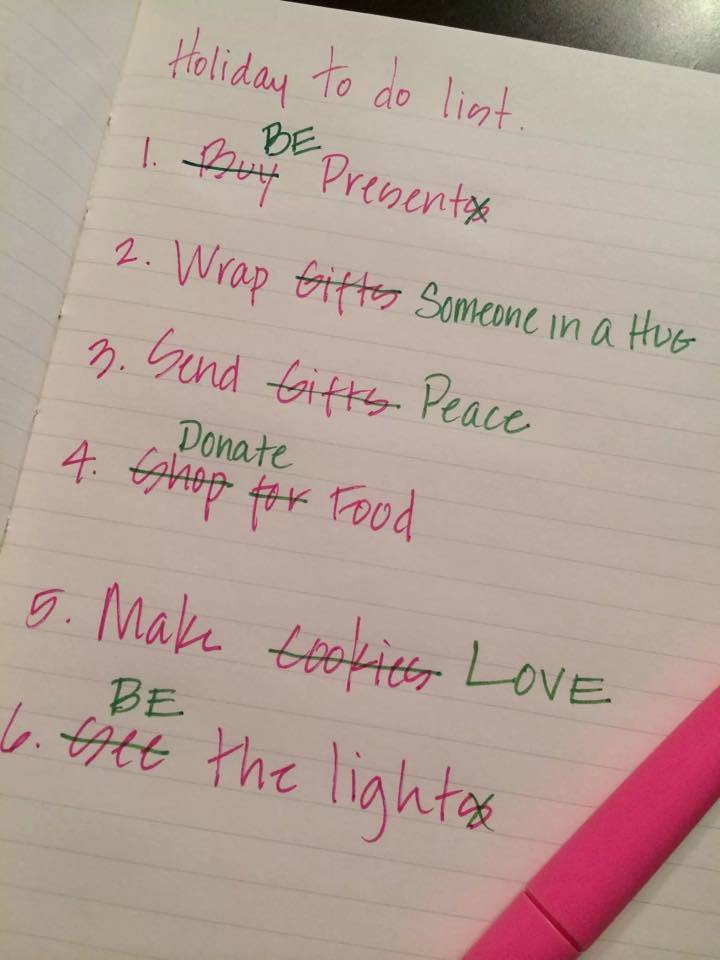 Holiday to do list.
1. Buy BE Presents
2. Wrap Gifts Someone in a Hug
3. Send Gifts Peace
Donate
4. Shop for Food
5. Make Cookies LOVE
BE
6. See the lights